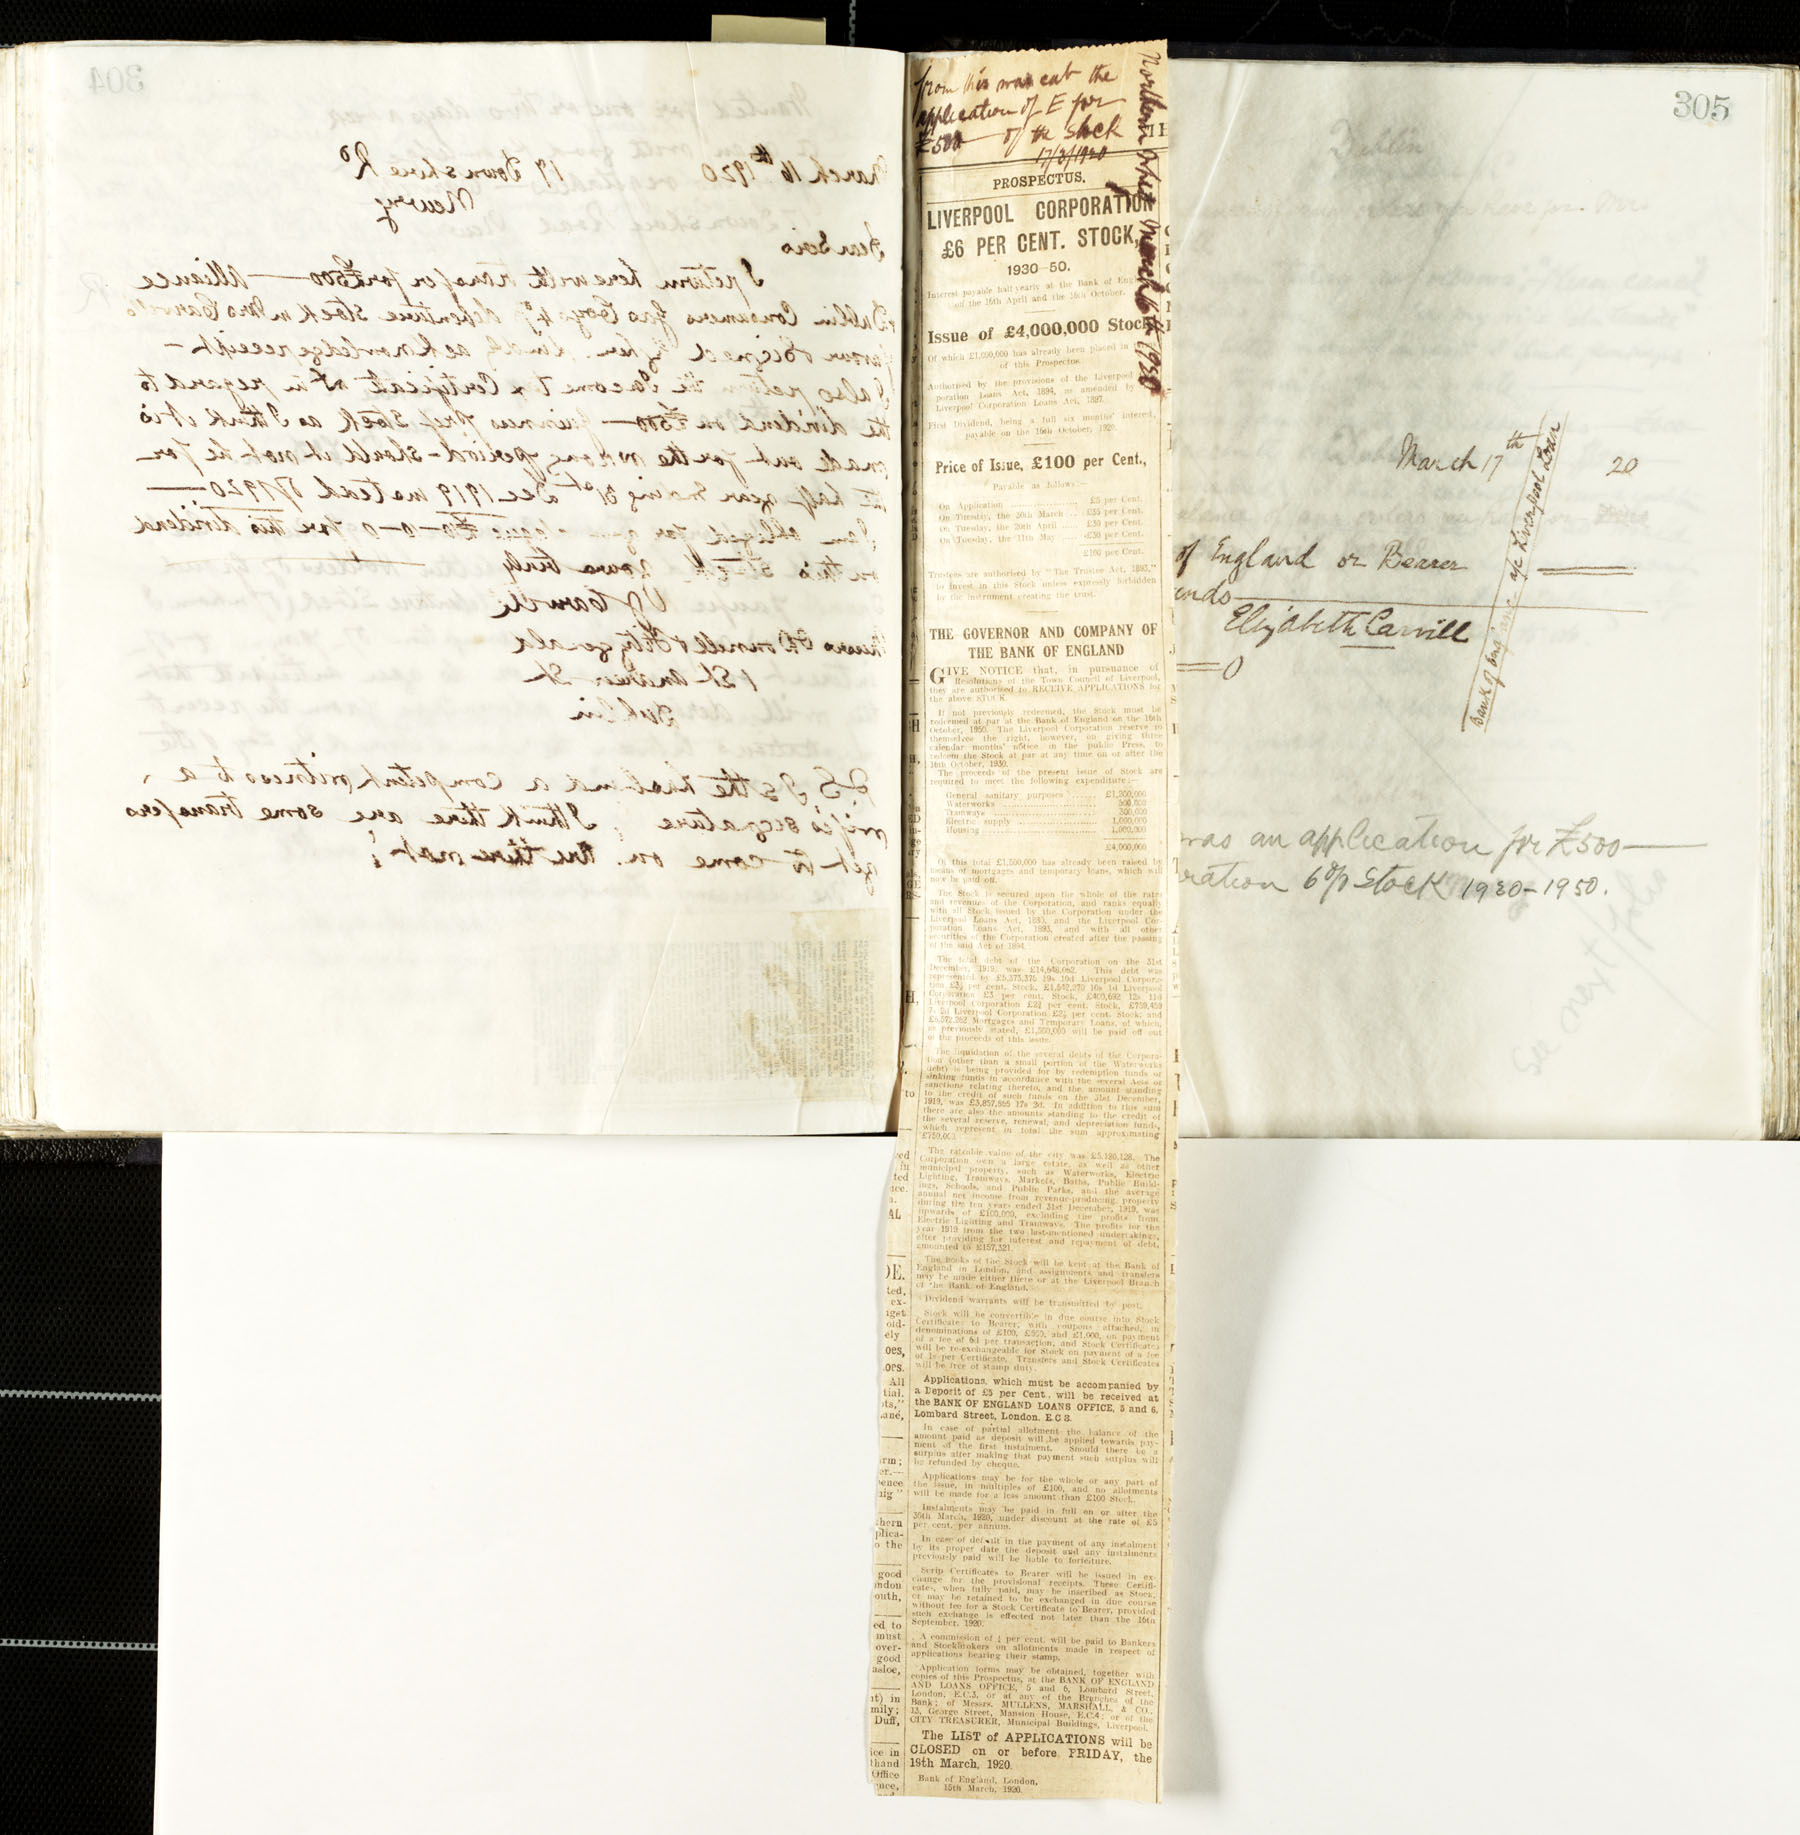 304
March 16th 1920 19 Downshire Rd
Newry
Dear Sirs
I return herewith transfer for £500 — Alliance
& Dublin Consumers Gas Coys 4% Debenture Stock in Mrs Carvill's
favour signed by her. Kindly acknowledge receipt —
I also return the Income Tax Certificate in regard to
the dividend on £500 — Guinness Pref Stock as I think it is
made out for the wrong period — should it not be for
the half year ending 31st Dec 1919 instead of 1920 —
I am obliged for your cheque £10-0-0 for this dividend
on this Stock
Yours truly
Carvill
Messrs O'Donnell & Fitzgerald
1 St Andrew St
Dublin
PS Is the husband a competent witness to a
wife's signature; I think there are some transfers
yet to come on. Are there not?
from this was cut the
application of E for
£500 — of the stock
17/3/1920
Northern Whig March 16th 1920
PROSPECTUS.
LIVERPOOL CORPORATION
£6 PER CENT. STOCK,
1930-50.
Interest payable half yearly at the Bank of Eng
on the 16th April and the 16th October.
Issue of £4,000,000 Stock
Of which £1,000,000 has already been placed in
of this Prospectus.
Authorised by the provisions of the Liverpool
poration Loans Act, 1894, as amended by
Liverpool Corporation Loans Act, 1897.
First Dividend, being a full six months' interest,
payable on the 16th October, 1920.
Price of Issue, £100 per Cent.,
Payable as follows:—
On Application ........ £5 per Cent.
On Tuesday, the 30th March .... £35 per Cent.
On Tuesday, the 20th April .... £30 per Cent.
On Tuesday, the 11th May .... £30 per Cent.
£100 per Cent.
Trustees are authorised by "The Trustee Act, 1893,"
to invest in this Stock unless expressly forbidden
by the instrument creating the trust.
THE GOVERNOR AND COMPANY OF
THE BANK OF ENGLAND
GIVE NOTICE that, in pursuance of
Resolutions of the Town Council of Liverpool,
they are authorised to RECEIVE APPLICATIONS for
the above STOCK
If not previously redeemed, the Stock must be
redeemed at par at the Bank of England on the 16th
October, 1950. The Liverpool Corporation reserve to
themselves the right, however, on giving three
calendar months' notice in the public Press, to
redeem the Stock at par at any time on or after the
16th October, 1930.
The proceeds of the present issue of Stock are
required to meet the following expenditure:—
General sanitary purposes ...... £1,200,000
Waterworks ........ 500,000
Tramways ........ 300,000
Electric supply ........ 1,000,000
Housing ........ 1,000,000
£4,000,000
Of this total £1,500,000 has already been raised by
means of mortgages and temporary loans, which will
now be paid off.
The Stock is secured upon the whole of the rates
and revenues of the Corporation, and ranks equally
with all Stock issued by the Corporation under the
Liverpool Loans Act, 1880, and the Liverpool Cor-
poration Loans Act, 1893, and with all other
securities of the Corporation created after the passing
of the said Act of 1894.
The total debt of the Corporation on the 31st
December, 1919, was £14,648,062. This debt was
represented by £6,373,376 19s 10d Liverpool Corpora-
tion £3½ per cent. Stock, £1,542,270 16s 1d Liverpool
Corporation £3 per cent. Stock, £400,692 12s 11d
Liverpool Corporation £2¾ per cent. Stock, £759,459
7s 2d Liverpool Corporation £2½ per cent. Stock; and
£5,572,262 Mortgages and Temporary Loans, of which,
as previously stated, £1,500,000 will be paid off out
of the proceeds of this issue.
The liquidation of the several debts of the Corpora-
tion (other than a small portion of the Waterworks
debt) is being provided for by redemption funds or
sinking funds in accordance with the several Acts or
sanctions relating thereto, and the amount standing
to the credit of such funds on the 31st December,
1919, was £3,857,866 17s 2d. In addition to this sum
there are also the amounts standing to the credit of
the several reserve, renewal, and depreciation funds,
which represent in total the sum approximating
£750,000.
The rateable value of the city was £5,180,128. The
Corporation own a large estate, as well as other
municipal property, such as Waterworks, Electric
Lighting, Tramways, Markets, Baths, Public Build-
ings, Schools, and Public Parks, and the average
annual net income from revenue-producing property
during the ten years ended 31st December, 1919, was
upwards of £100,000, excluding the profits from
Electric Lighting and Tramways. The profits for the
year 1919 from the two last-mentioned undertakings,
after providing for interest and repayment of debt,
amounted to £157,321.
The books of the Stock will be kept at the Bank of
England in London, and assignments and transfers
may be made either there or at the Liverpool Branch
of the Bank of England.
Dividend warrants will be transmitted by post.
Stock will be convertible in due course into Stock
Certificates to Bearer, with coupons attached, in
denominations of £100, £500, and £1,000, on payment
of a fee of 6d per transaction, and Stock Certificates
will be re-exchangeable for Stock on payment of a fee
of 1s per Certificate. Transfers and Stock Certificates
will be free of stamp duty.
Applications, which must be accompanied by
a Deposit of £5 per Cent., will be received at
the BANK OF ENGLAND LOANS OFFICE, 5 and 6,
Lombard Street, London, E.C 3.
In case of partial allotment the balance of the
amount paid as deposit will be applied towards pay-
ment of the first instalment. Should there be a
surplus after making that payment such surplus will
be refunded by cheque.
Applications may be for the whole or any part of
the issue, in multiples of £100, and no allotments
will be made for a less amount than £100 Stock.
Instalments may be paid in full on or after the
30th March, 1920, under discount at the rate of £5
per cent. per annum.
In case of default in the payment of any instalment
by its proper date the deposit and any instalments
previously paid will be liable to forfeiture.
Scrip Certificates to Bearer will be issued in ex-
change for the provisional receipts. These Certifi-
cates, when fully paid, may be inscribed as Stock,
or may be retained to be exchanged in due course
without fee for a Stock Certificate to Bearer, provided
such exchange is effected not later than the 16th
September, 1920.
A commission of ¼ per cent. will be paid to Bankers
and Stockbrokers on allotments made in respect of
applications bearing their stamp.
Application forms may be obtained, together with
copies of this Prospectus, at the BANK OF ENGLAND
AND LOANS OFFICE, 5 and 6, Lombard Street,
London, E.C.3, or at any of the Branches of the
Bank; of Messrs. MULLENS, MARSHALL, & CO.,
13, George Street, Mansion House, E.C.4; or of the
CITY TREASURER, Municipal Buildings, Liverpool.
The LIST of APPLICATIONS will be
CLOSED on or before FRIDAY, the
19th March, 1920.
Bank of England, London,
15th March, 1920.
305
March 17th 20
of England or Bearer
unds
Elizabeth Carvill
0
Bank of England a/c Liverpool Loan
was an application for £500 —
ration 6% Stock 1930-1950.
See next folio